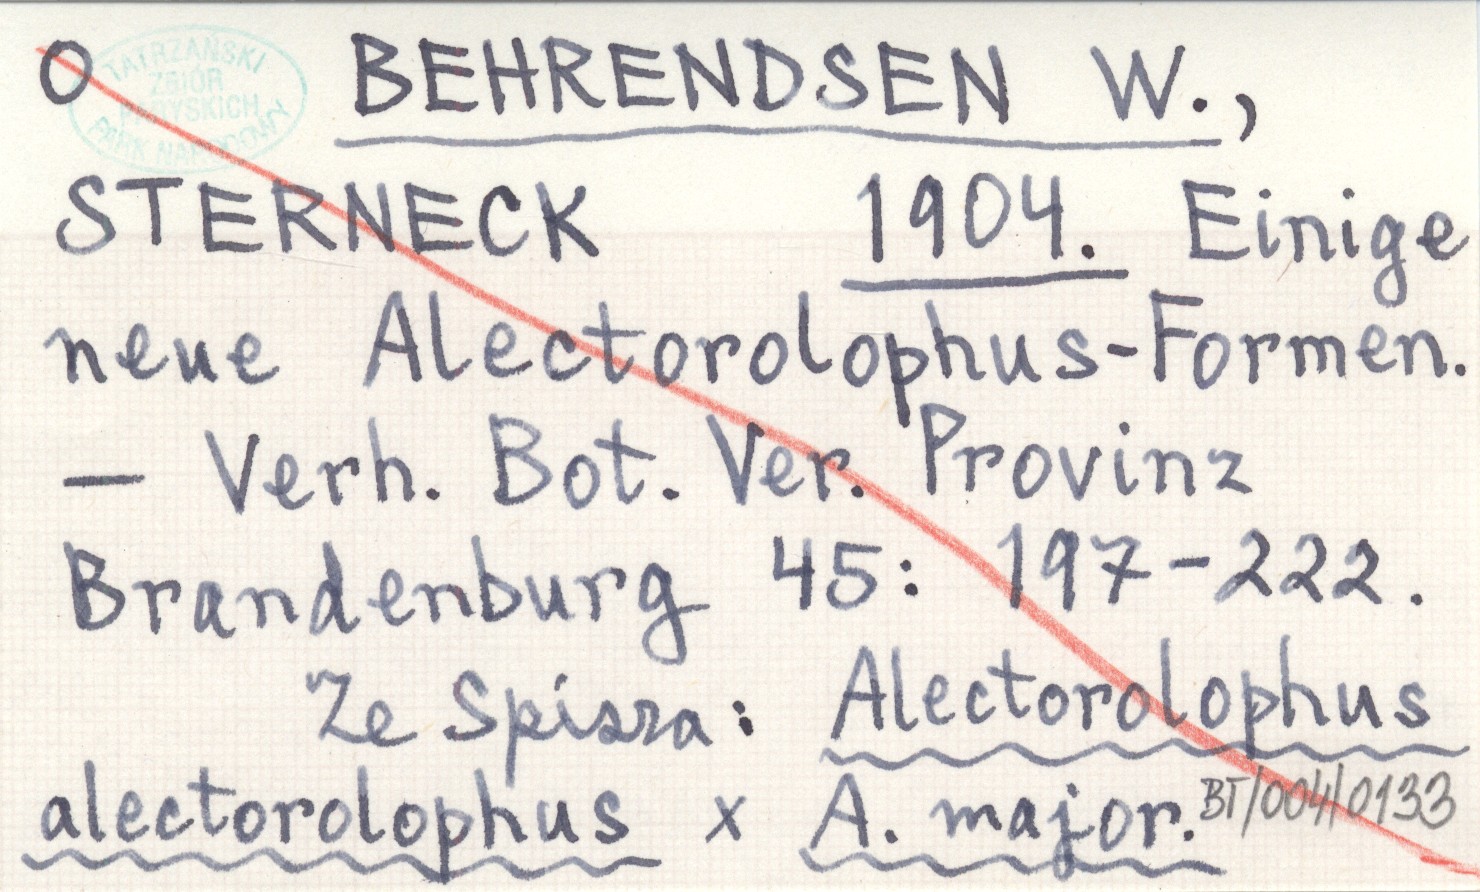 O BEHRENDSEN W.,
TATRZAŃSKI
ZBIÓR
PARYSKICH
PARK NARODOWY
STERNECK 1904. Einige
neue Alectorolophus-Formen.
— Verh. Bot. Ver. Provinz
Brandenburg 45: 197-222.
Ze Spisza: Alectorolophus
alectorolophus x A. major.
BT/004/0133